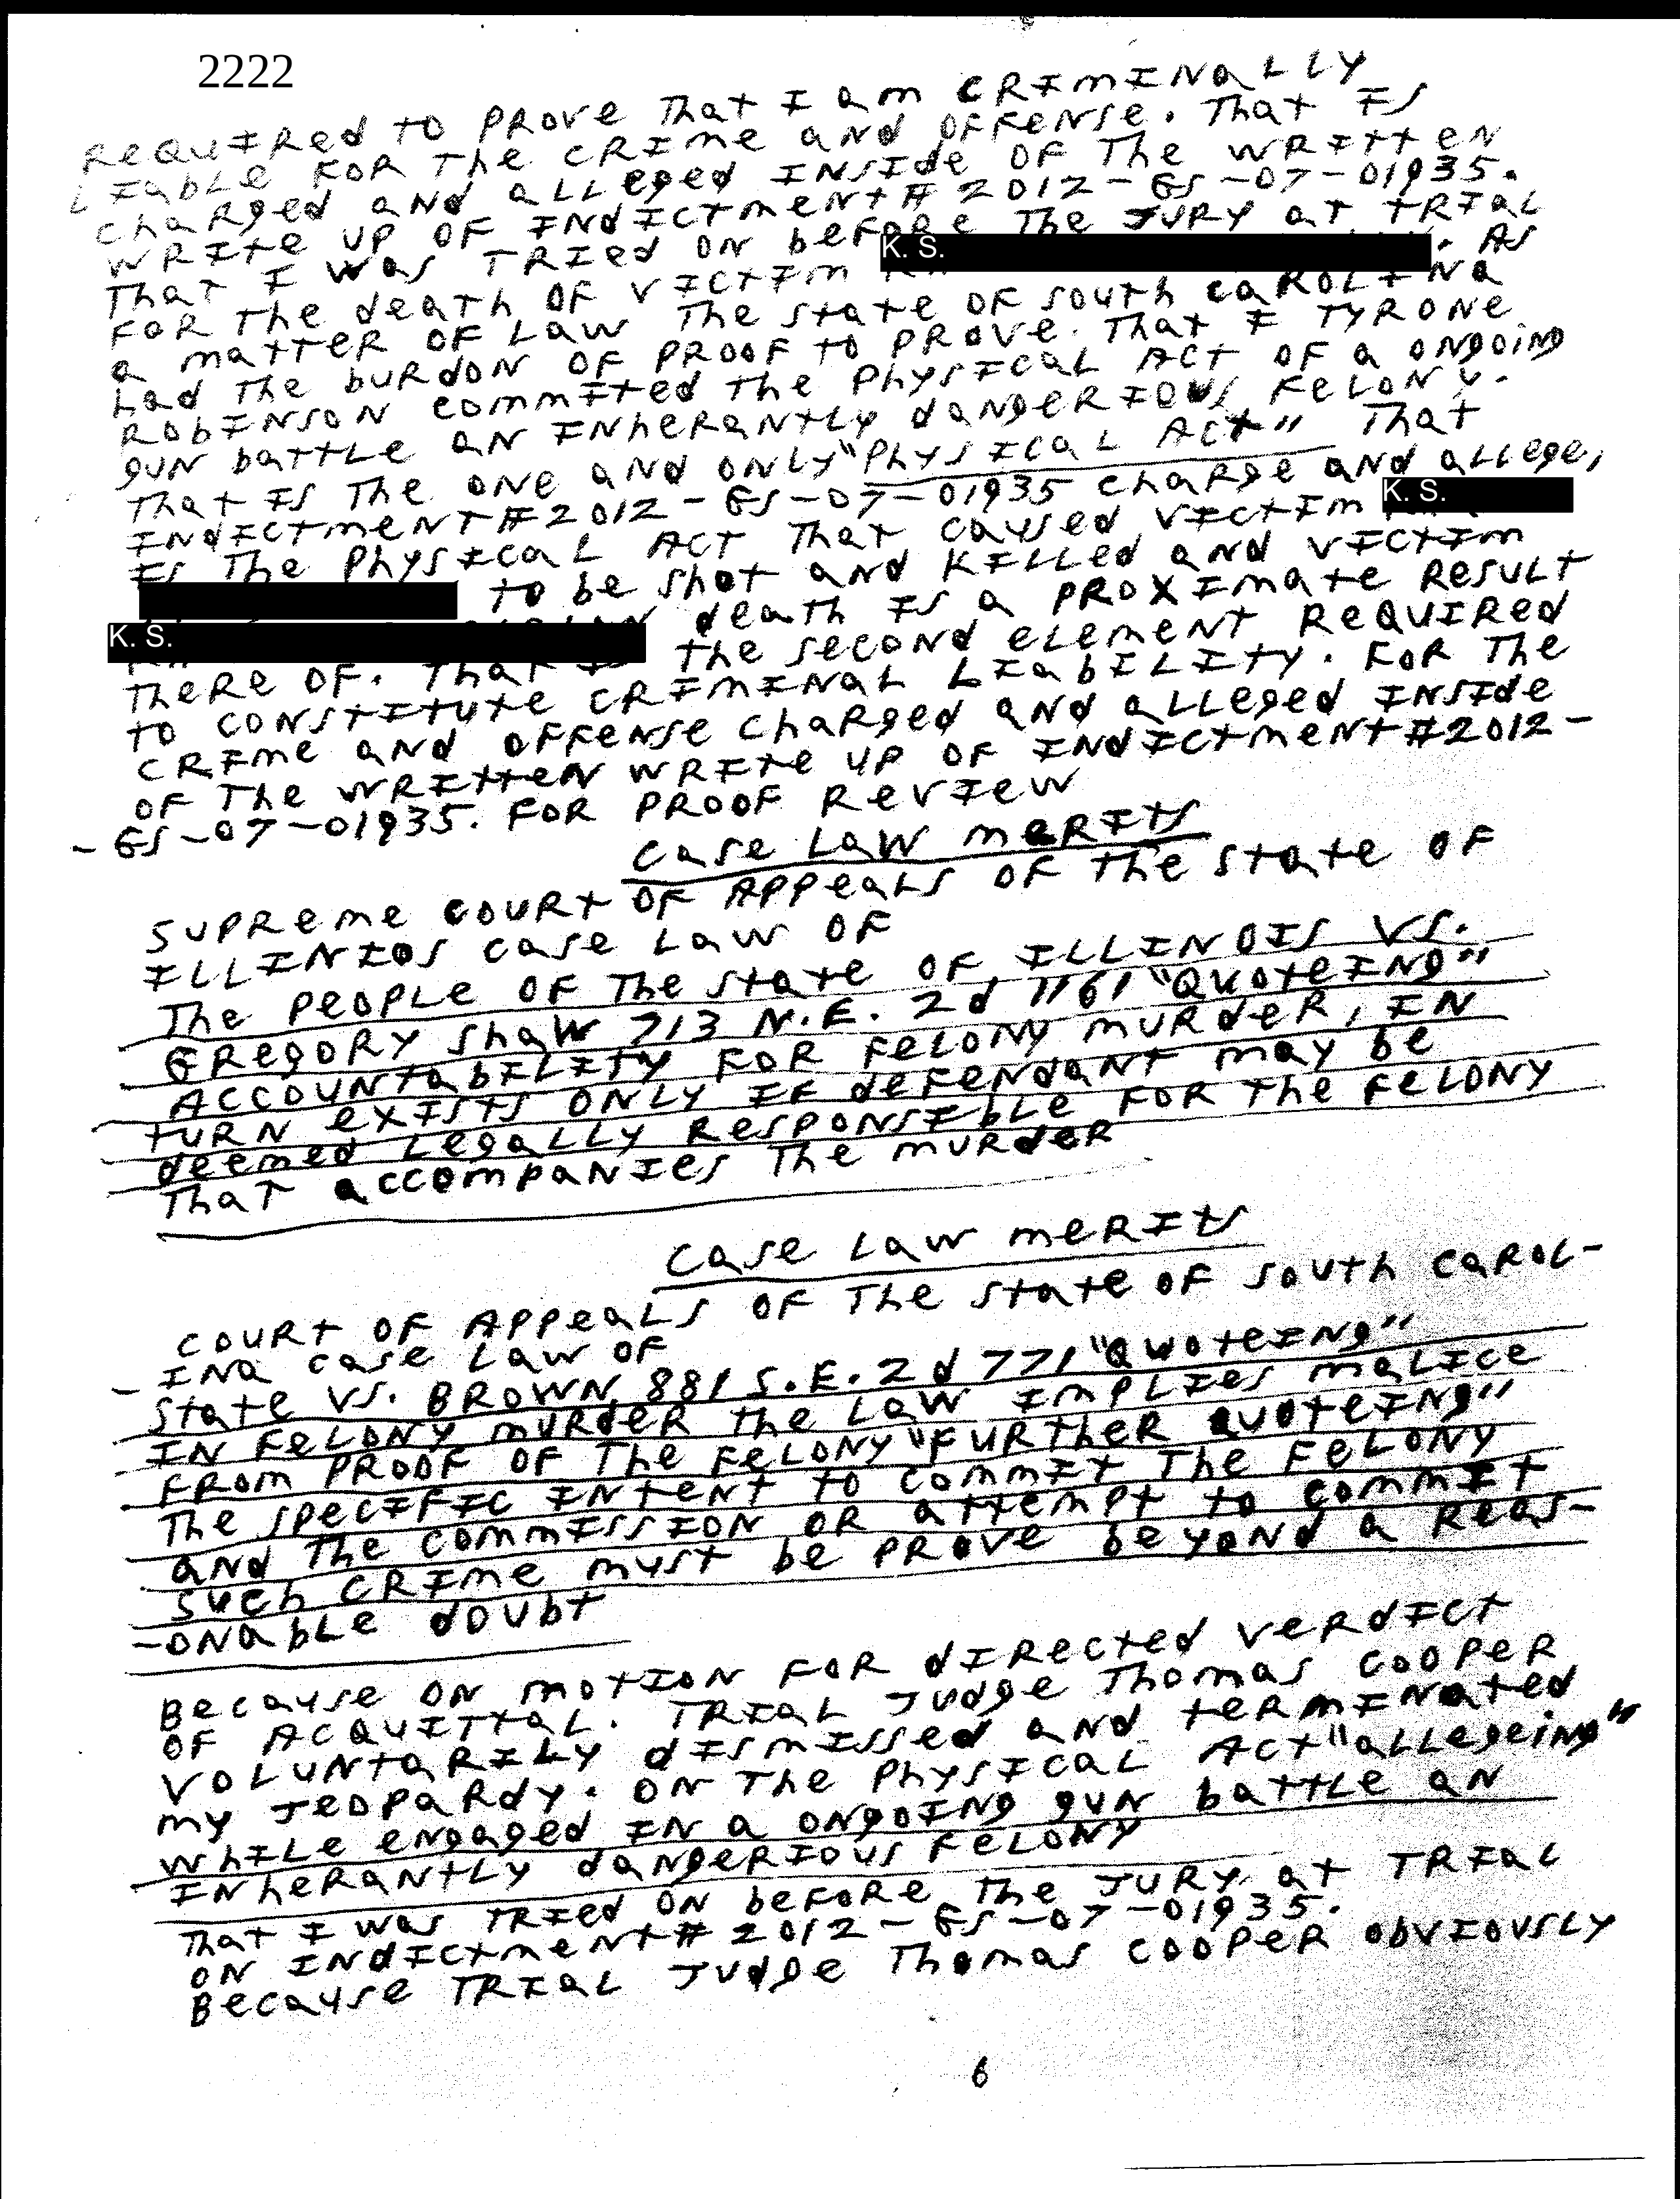 2222
REQUIRED TO PROVE THAT I AM CRIMINALLY
LIABLE FOR THE CRIME AND OFFENSE. THAT IS
CHARGED AND ALLEGED INSIDE OF THE WRITTEN
WRITE UP OF INDICTMENT# 2012-GS-07-01935.
THAT I WAS TRIED ON BEFORE THE JURY AT TRIAL
FOR THE DEATH OF VICTIM K. S. . AS
A MATTER OF LAW THE STATE OF SOUTH CAROLINA
HAD THE BURDON OF PROOF TO PROVE. THAT I TYRONE
ROBINSON COMMITED THE PHYSICAL ACT OF A ONGOING
GUN BATTLE AN INHERANTLY DANGERIOUS FELONY.
THAT IS THE ONE AND ONLY "PHYSICAL ACT" THAT
INDICTMENT#2012-GS-07-01935 CHARGE AND ALLEGE,
IS THE PHYSICAL ACT THAT CAUSED VICTIM K. S.
TO BE SHOT AND KILLED AND VICTIM
K. S. DEATH IS A PROXIMATE RESULT
THERE OF. THAT THE SECOND ELEMENT REQUIRED
TO CONSTITUTE CRIMINAL LIABILITY. FOR THE
CRIME AND OFFENSE CHARGED AND ALLEGED INSIDE
OF THE WRITTEN WRITE UP OF INDICTMENT#2012-
-GS-07-01935. FOR PROOF REVIEW
CASE LAW MERITS
SUPREME COURT OF APPEALS OF THE STATE OF
ILLINIOS CASE LAW OF
THE PEOPLE OF THE STATE OF ILLINOIS VS.
GREGORY SHAW 713 N.E. 2d 1161 "QUOTEING"
ACCOUNTABILITY FOR FELONY MURDER, IN
TURN EXISTS ONLY IF DEFENDANT MAY BE
DEEMED LEGALLY RESPONSIBLE FOR THE FELONY
THAT ACCOMPANIES THE MURDER
CASE LAW MERITS
COURT OF APPEALS OF THE STATE OF SOUTH CAROL-
-INA CASE LAW OF
STATE VS. BROWN 881 S.E. 2d 771 "QUOTEING"
IN FELONY MURDER THE LAW IMPLIES MALICE
FROM PROOF OF THE FELONY "FURTHER QUOTEING"
THE SPECIFIC INTENT TO COMMIT THE FELONY
AND THE COMMISSION OR ATTEMPT TO COMMIT
SUCH CRIME MUST BE PROVE BEYOND A REAS-
-ONABLE DOUBT
BECAUSE ON MOTION FOR DIRECTED VERDICT
OF ACQUITTAL. TRIAL JUDGE THOMAS COOPER
VOLUNTARILY DISMISSED AND TERMINATED
MY JEOPARDY. ON THE PHYSICAL ACT "ALLEGEING"
WHILE ENGAGED IN A ONGOING GUN BATTLE AN
INHERANTLY DANGERIOUS FELONY
THAT I WAS TRIED ON BEFORE THE JURY AT TRIAL
ON INDICTMENT# 2012-GS-07-01935.
BECAUSE TRIAL JUDGE THOMAS COOPER OBVIOUSLY
6